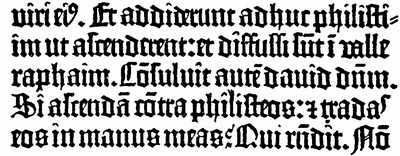 viri ei⁹. Et addiderunt adhuc philisti-
im ut ascenderent: et diffusi sūt ī valle
raphaim. Cōsuluit autē dauid dn̄m.
Si ascendā cōtra philisteos: ⁊ tradaſ
eos in manus meas: Qui rn̄dit. Nō